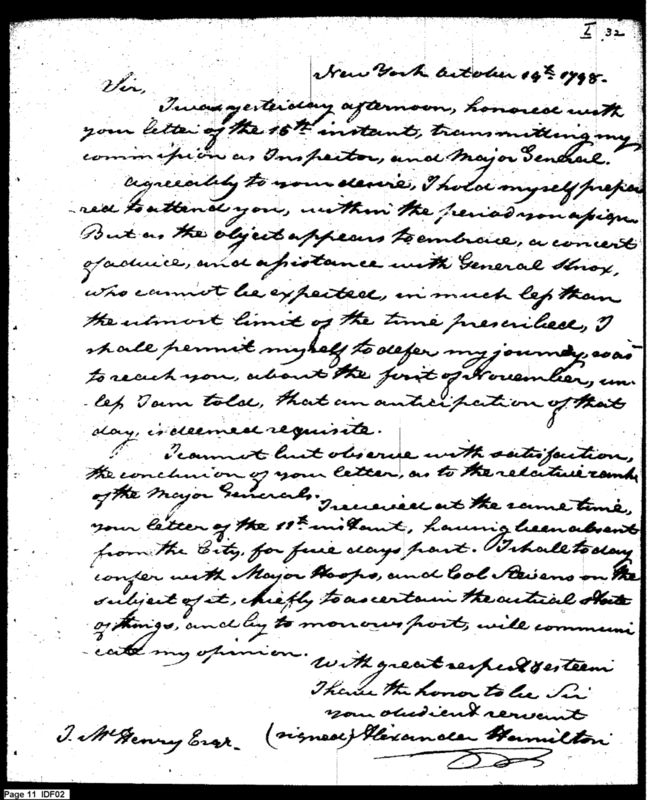 I 32
New York October 19th 1798.
Sir,
I was yesterday afternoon, honored with
your letter of the 15th instant, transmitting my
commission as Inspector, and Major General.
agreeably to your desire, I hold myself prepa
-red to attend you, within the period you assign.
But as the object appears to embrace, a concert
of advice, and assistance with General Knox,
who cannot be expected, in much less than
the utmost limit of the time prescribed, I
shall permit myself to defer my journey, so as
to reach you, about the first of November, un-
less I am told, that an anticipation of that
day, is deemed requisite.
I cannot but observe with satisfaction,
the conclusion of your letter, as to the relative rank
of the Major Generals.
I received at the same time,
your letter of the 11th instant, having been absent
from the City, for five days past. I shall to day
confer with Major Hoops, and Col Stevens on the
subject of it, chiefly to ascertain the actual state
of things, and by to morrows post, will communi
-cate my opinion.
With great respect & esteem
I have the honor to be Sir
your obedient servant
(signed) Alexander Hamilton
J. McHenry Esqr.
Page 11 IDF02